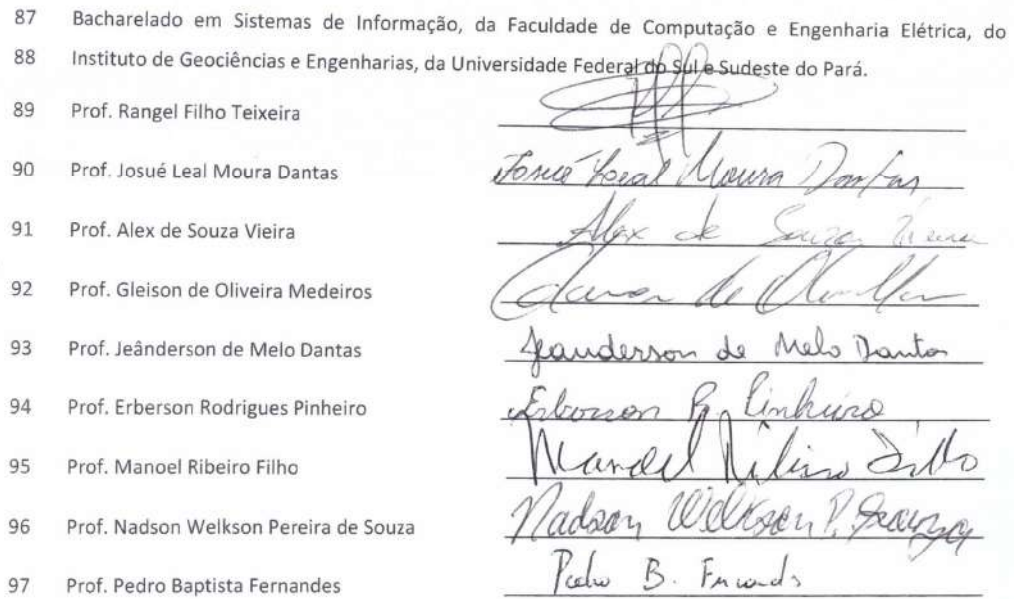 87 Bacharelado em Sistemas de Informação, da Faculdade de Computação e Engenharia Elétrica, do
88 Instituto de Geociências e Engenharias, da Universidade Federal do Sul e Sudeste do Pará.
89 Prof. Rangel Filho Teixeira
90 Prof. Josué Leal Moura Dantas Josué Leal Moura Dantas
91 Prof. Alex de Souza Vieira Alex de Souza Vieira
92 Prof. Gleison de Oliveira Medeiros de
93 Prof. Jeânderson de Melo Dantas Jeanderson de Melo Dantas
94 Prof. Erberson Rodrigues Pinheiro Erberson R. Pinheiro
95 Prof. Manoel Ribeiro Filho Manoel Ribeiro Filho
96 Prof. Nadson Welkson Pereira de Souza Nadson Welkson P. Souza
97 Prof. Pedro Baptista Fernandes Pedro B. Fernandes